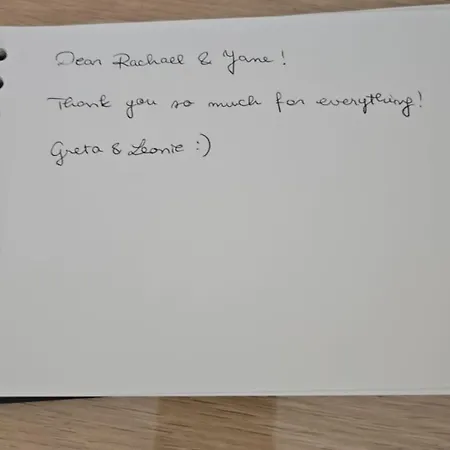 Dear Rachael & Yane!
Thank you so much for everything!
Greta & Leonie :)